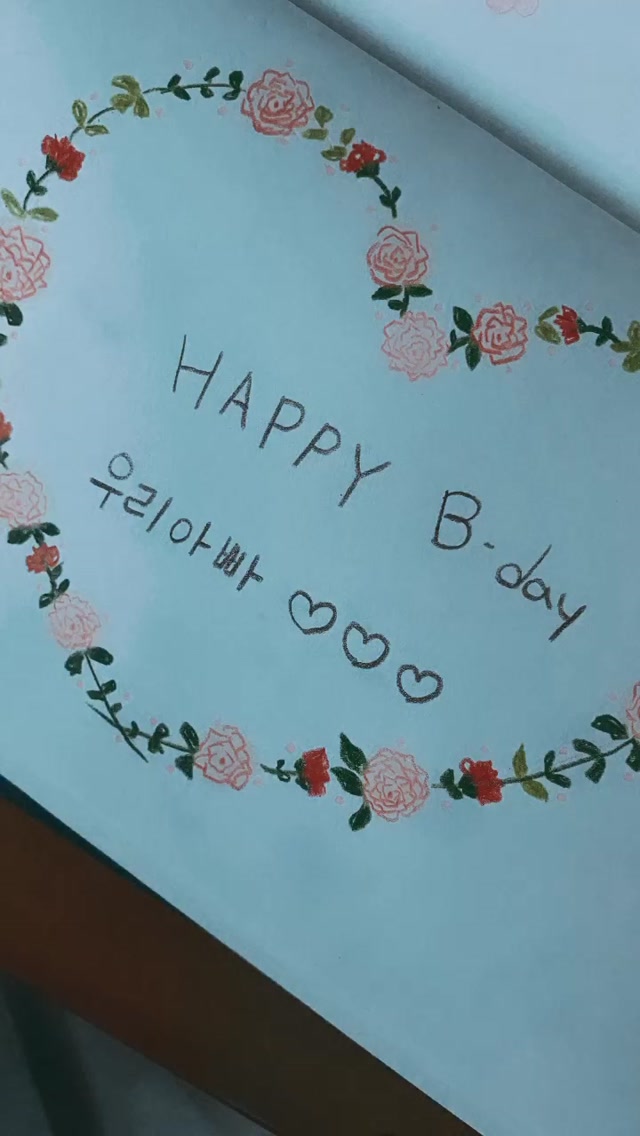 HAPPY B-day
우리아빠 ♡♡♡